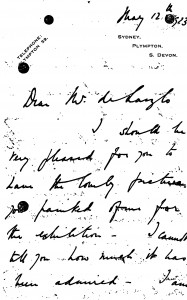 May 12th 1913
TELEPHONE:
PLYMPTON
SYDNEY,
PLYMPTON,
S. DEVON.
Dear Mr. de Laszlo
I should be
very pleased for you to
have the lovely picture
you painted of me for
the exhibition - I cannot
tell you how much it has
been admired - I am